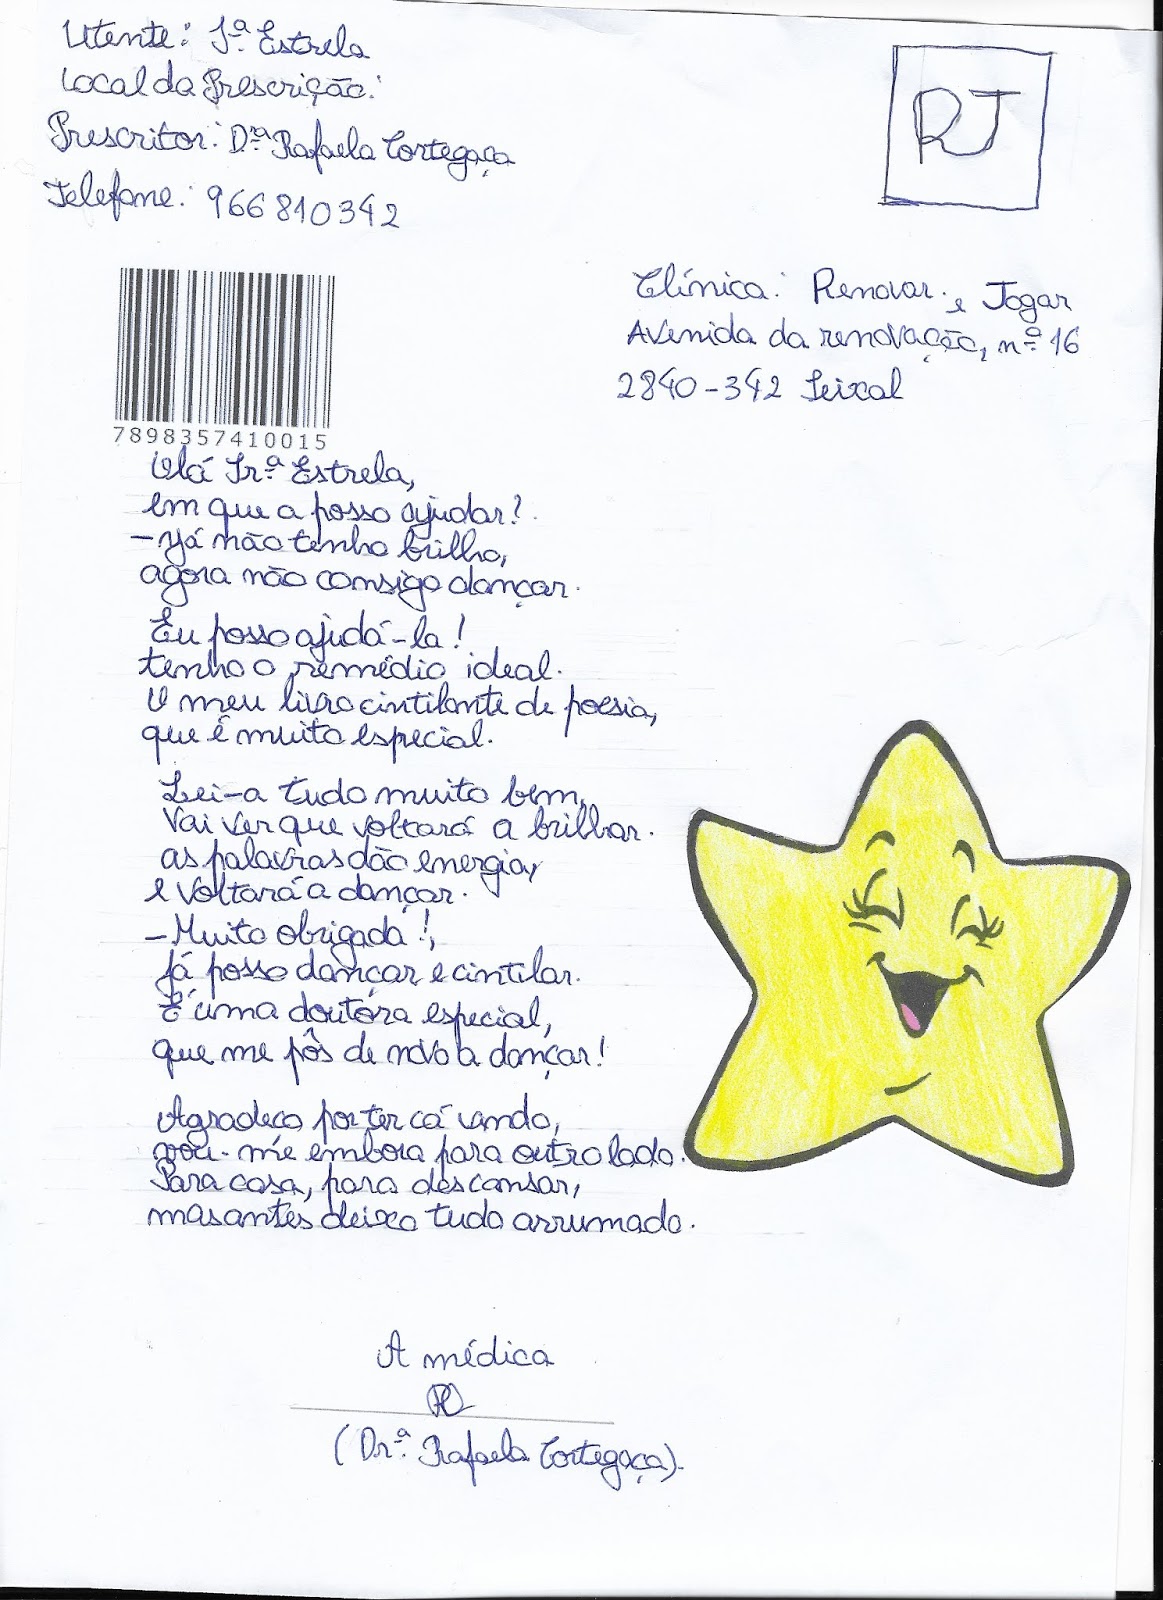 Utente: Sª Estrela
Local da Prescrição:
Prescritor: Drª Rafaela Cortegaça
Telefone: 966810342
RJ
7898357410015
Clínica: Renovar e Jogar
Avenida da renovação, nº 16
2840-342 Seixal
Olá Srª Estrela,
em que a posso ajudar?.
- Já não tenho brilho,
agora não consigo dançar.
Eu posso ajudá-la!
tenho o remédio ideal.
O meu livro cintilante de poesia,
que é muito especial.
Lei-a tudo muito bem,
Vai ver que voltará a brilhar.
as palavras dão energia,
e voltará a dançar.
- Muito obrigada!,
já posso dançar e cintilar.
É uma doutora especial,
que me pôs de novo a dançar!
Agradeço por ter cá vindo,
vou-me embora para outro lado.
Para casa, para descansar,
mas antes deixo tudo arrumado.
A médica
(Drª Rafaela Cortegaça).